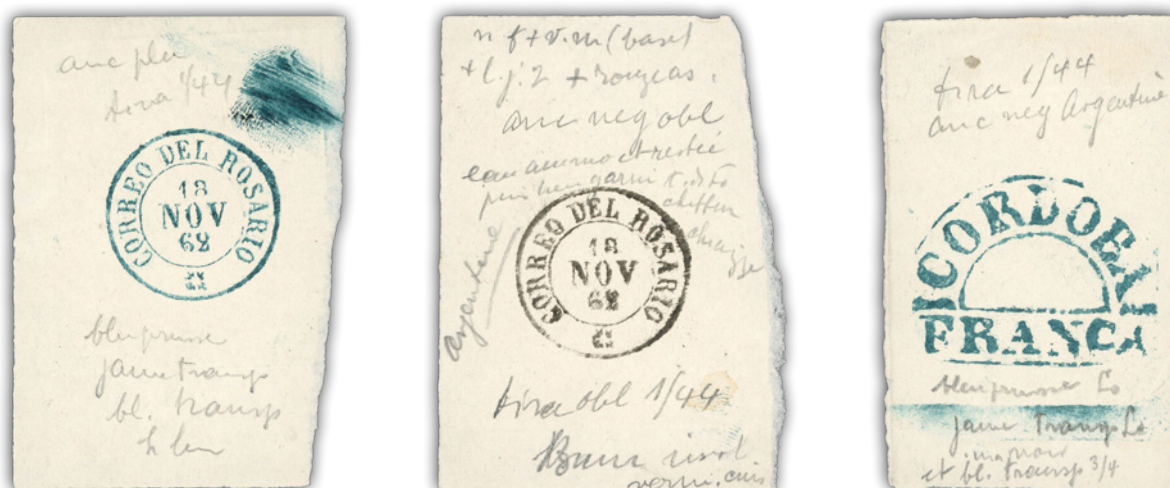 anc pla
tira 1/44
CORREO DEL ROSARIO
18
NOV
62
bleu prusse
jaune transp
bl. transp
n f + v. m (base)
+ l. j. 2 + rouge as.
anc neg obl
eau ammo et
puis bien garni
chiffon
argentine
CORREO DEL ROSARIO
18
NOV
62
tira obl 1/44
Brun
tira 1/44
anc neg Argentine
CORDOBA
FRANCA
bleu prusse Lo
jaune transp Lo
et bl. transp 3/4